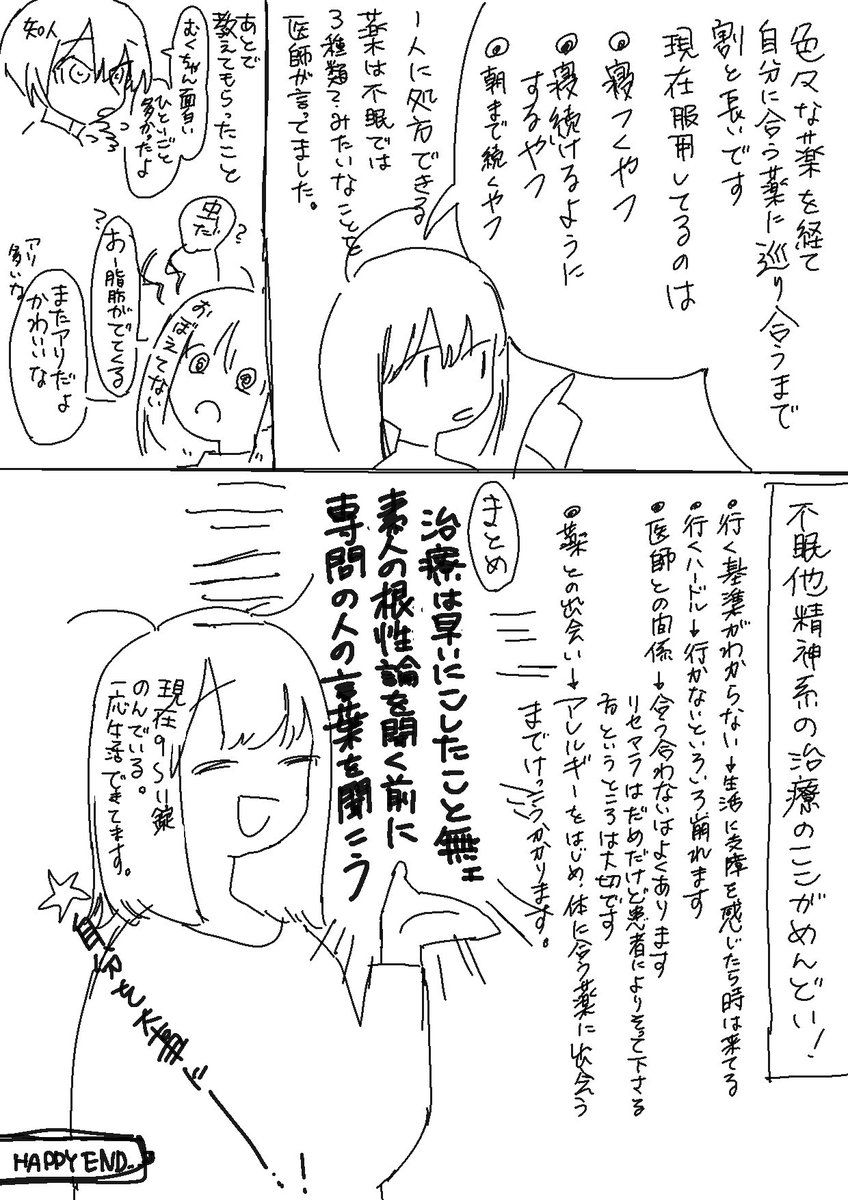 色々な薬を経て
自分に合う薬に巡り合うまで
割と長いです
現在服用してるのは
寝つくやつ
寝続けるように
するやつ
朝まで続くやつ
1人に処方できる
薬は不眠では
3種類?みたいなことを
医師が言ってました。
あとで
教えてもらったこと
知人
むくちゃん面白い
ひとりごと
多かったよ
虫だ
?
おぼえてない
?
おー脂肪がでてくる
アリ
多いな
またアリだよ
かわいいな
不眠他精神系の治療のここがめんどい!
行く基準がわからない→生活に支障を感じたら時は来てる
行くハードル→行かないといろいろ崩れます
医師との関係→合う合わないはよくあります
リセマラはだめだけど患者によりそって下さる
方というところは大切です
薬との出会い→アレルギーをはじめ、体に合う薬に出会う
までけっこうかかります。
まとめ
治療は早いにこしたこと無ェ
素人の根性論を聞く前に
専門の人の言葉を聞こう
現在9~11錠
のんでいる。
一応生活できてます。
自分を大事に…!
HAPPY END..